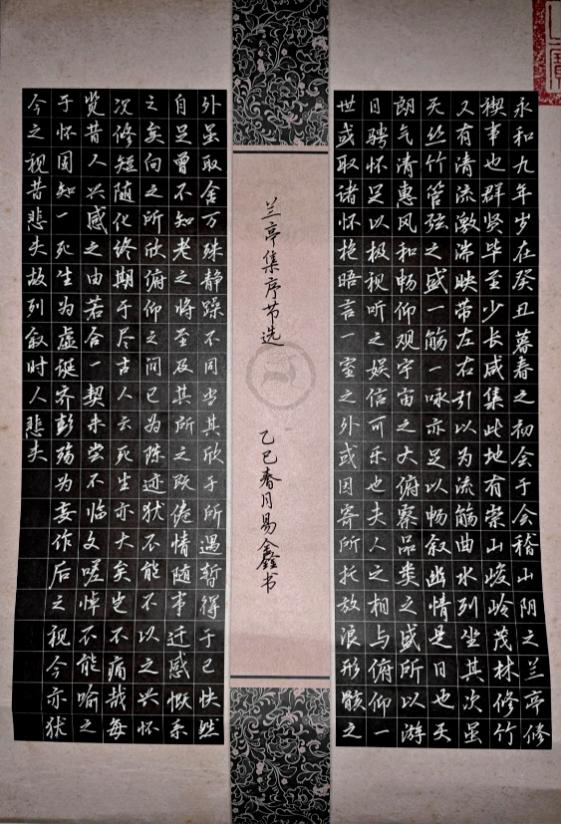 永和九年岁在癸丑暮春之初会于会稽山阴之兰亭修
禊事也群贤毕至少长咸集此地有崇山峻岭茂林修竹
又有清流激湍映带左右引以为流觞曲水列坐其次虽
无丝竹管弦之盛一觞一咏亦足以畅叙幽情是日也天
朗气清惠风和畅仰观宇宙之大俯察品类之盛所以游
目骋怀足以极视听之娱信可乐也夫人之相与俯仰一
世或取诸怀抱晤言一室之外或因寄所托放浪形骸之
兰亭集序节选
乙巳春月易鑫书
外虽取舍万殊静躁不同当其欣于所遇暂得于己快然
自足曾不知老之将至及其所之既倦情随事迁感慨系
之矣向之所欣俯仰之间已为陈迹犹不能不以之兴怀
次修短随化终期于尽古人云死生亦大矣岂不痛哉每
览昔人兴感之由若合一契未尝不临文嗟悼不能喻之
于怀固知一死生为虚诞齐彭殇为妄作后之视今亦犹
今之视昔悲夫故列叙时人悲夫